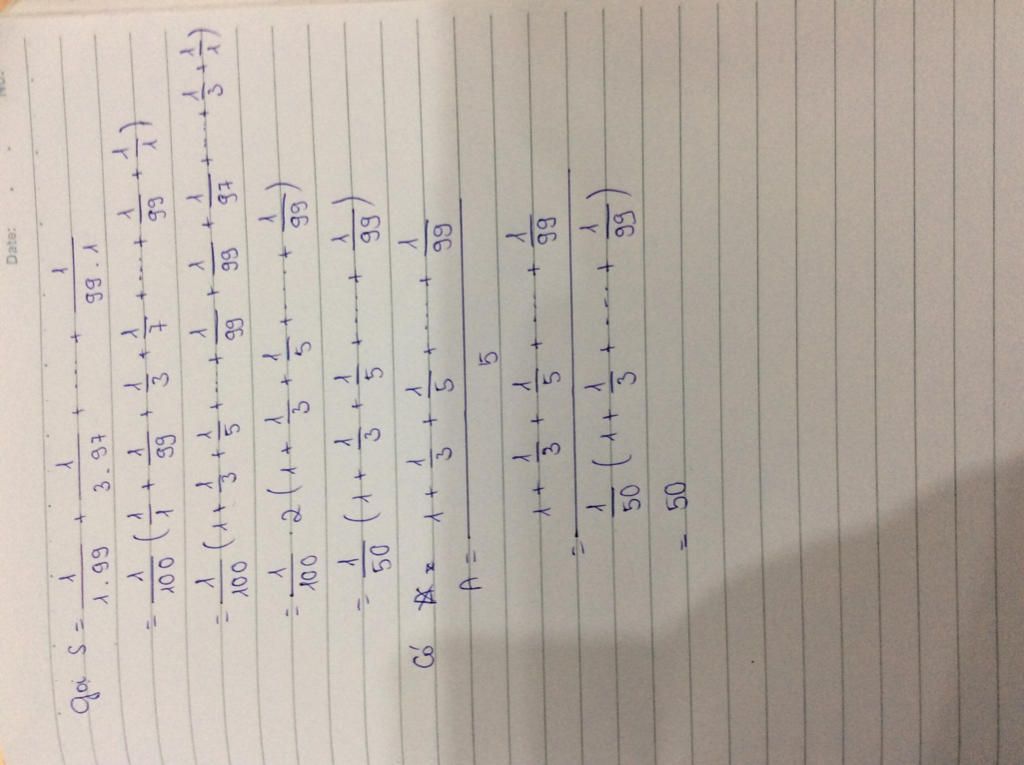 No.
Date:
Gọi S = 1/1.99 + 1/3.97 + ..... + 1/99.1
= 1/100 (1/1 + 1/99 + 1/3 + 1/7 + .... + 1/99 + 1/1)
= 1/100 (1 + 1/3 + 1/5 + .... + 1/99 + 1/99 + 1/97 + .... + 1/3 + 1/1)
= 1/100 . 2 (1 + 1/3 + 1/5 + .... + 1/99)
= 1/50 (1 + 1/3 + 1/5 + .... + 1/99)
Có A = (1 + 1/3 + 1/5 + .... + 1/99) / 5
= (1 + 1/3 + 1/5 + .... + 1/99) / (1/50 (1 + 1/3 + .... + 1/99))
= 50